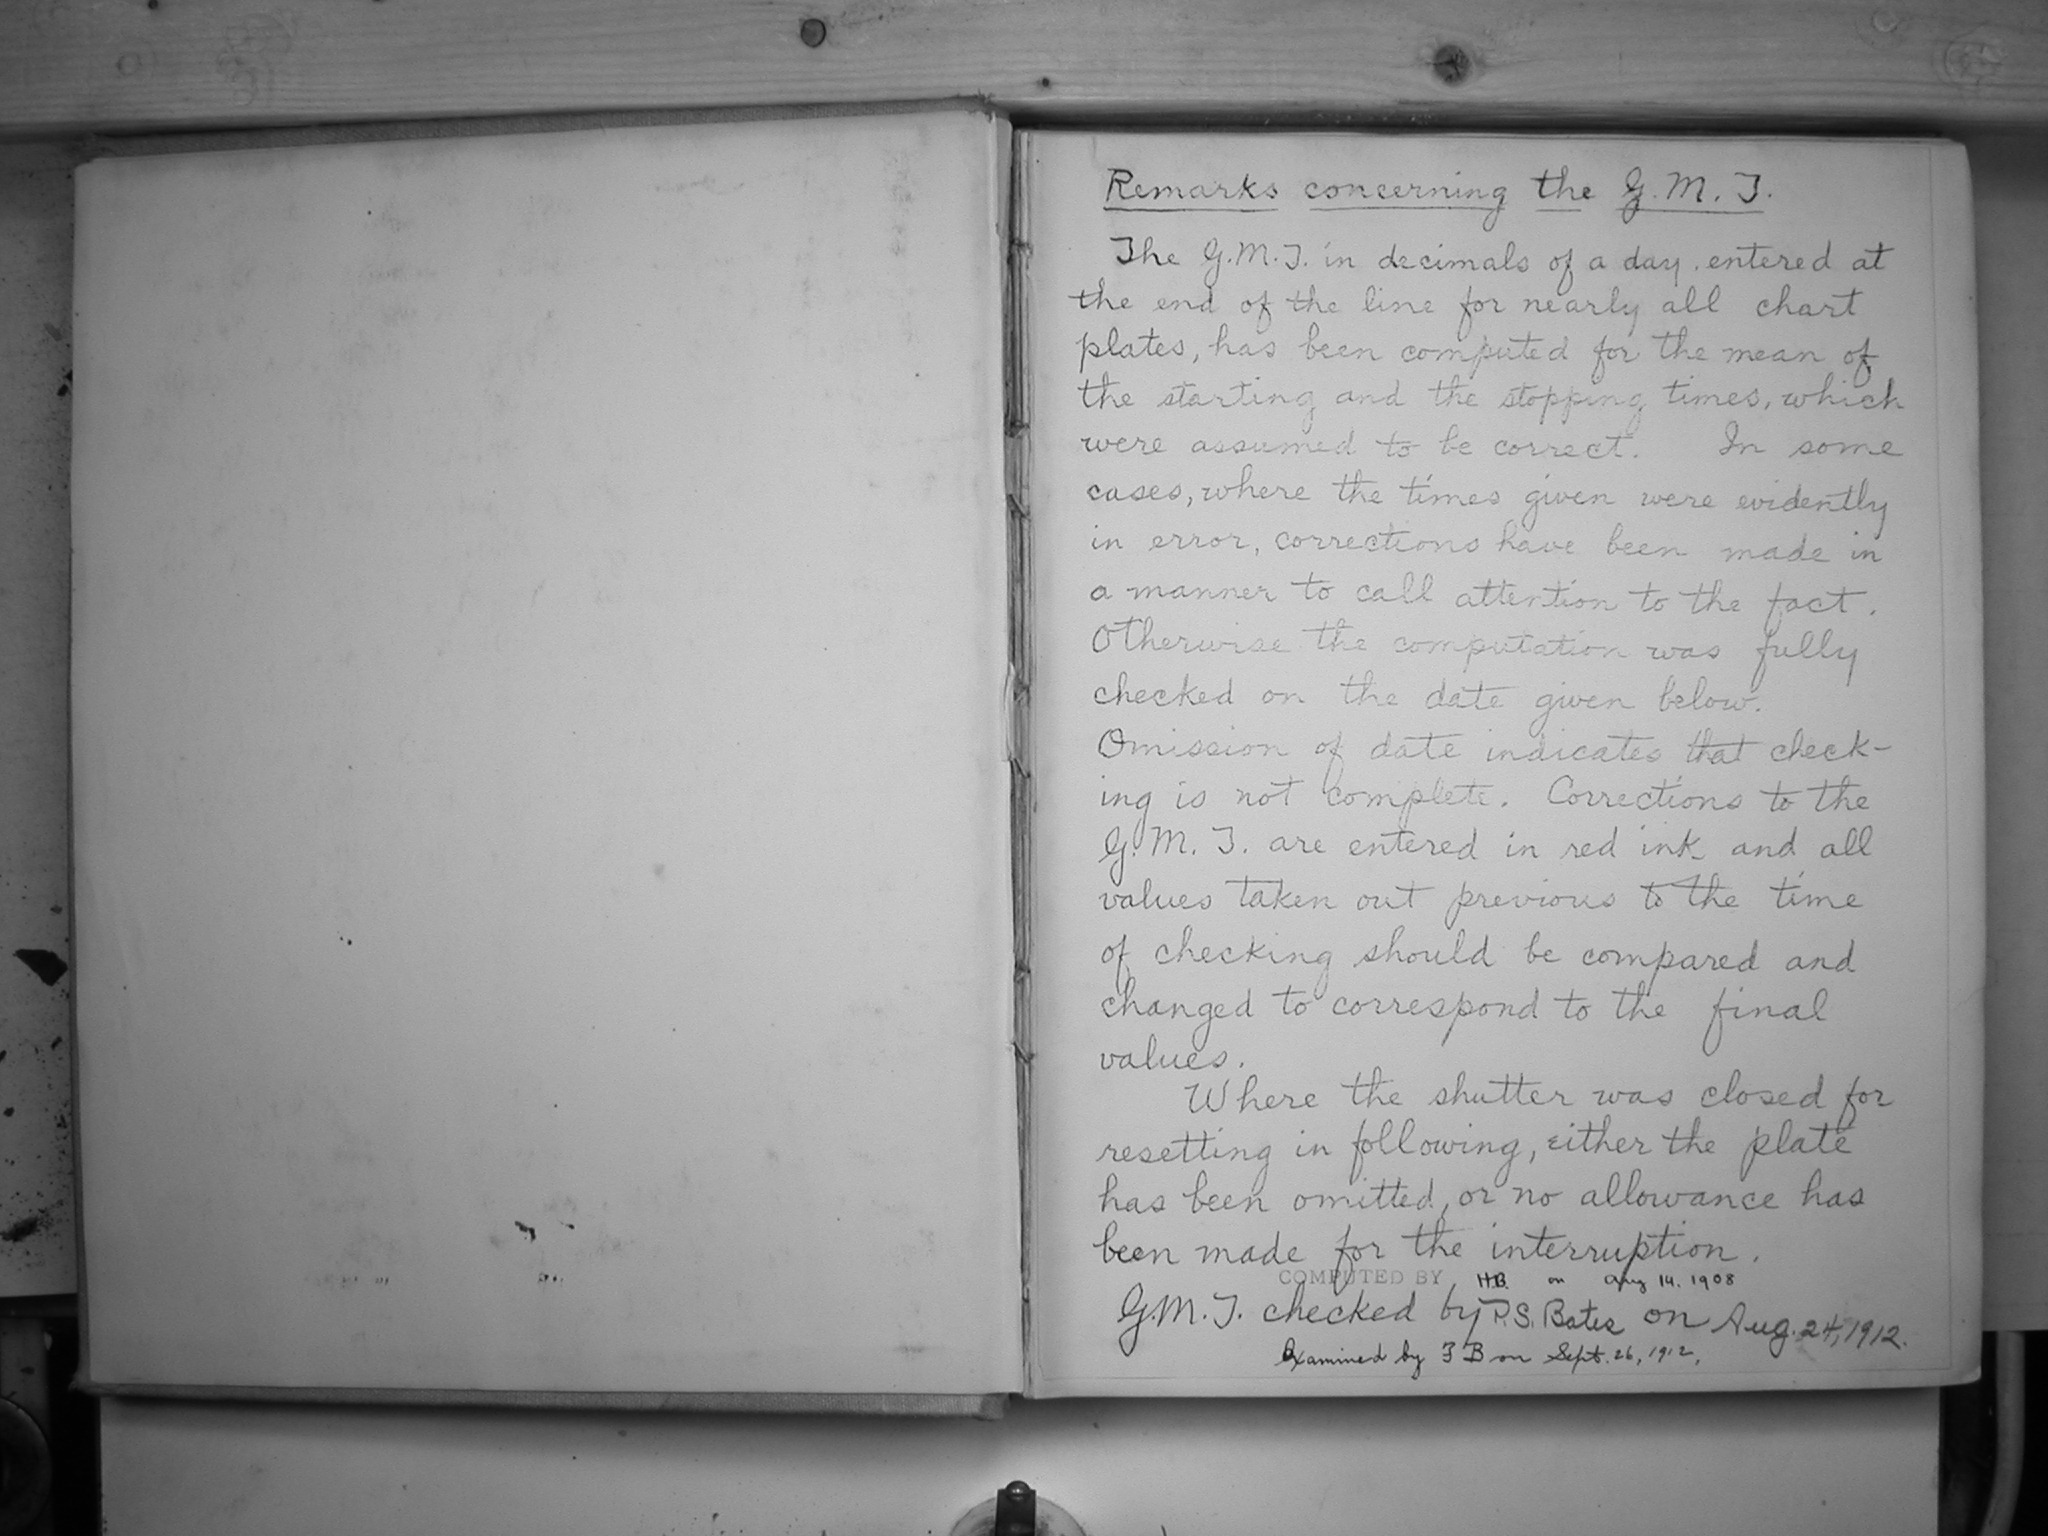 Remarks concerning the G. M. T.
The G.M.T. in decimals of a day, entered at
the end of the line for nearly all chart
plates, has been computed for the mean of
the starting and the stopping times, which
were assumed to be correct. In some
cases, where the times given were evidently
in error, corrections have been made in
a manner to call attention to the fact.
Otherwise the computation was fully
checked on the date given below.
Omission of date indicates that check-
ing is not complete. Corrections to the
G. M. T. are entered in red ink and all
values taken out previous to the time
of checking should be compared and
changed to correspond to the final
values.
Where the shutter was closed for
resetting in following, either the plate
has been omitted, or no allowance has
been made for the interruption.
COMPUTED BY H.B. on Aug 14. 1908
G.M.T. checked by P.S. Bates on Aug. 24, 1912.
Examined by F B on Sept. 26, 1912.